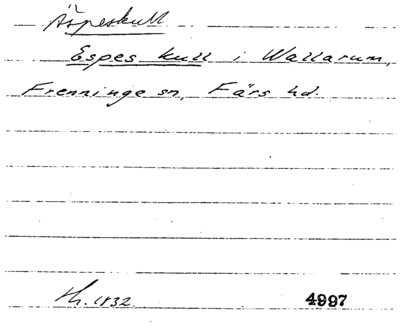 Äspeskull
Espes kull i Wallarum,
Frenninge sn, Färs hd.
th. 1832. 4997